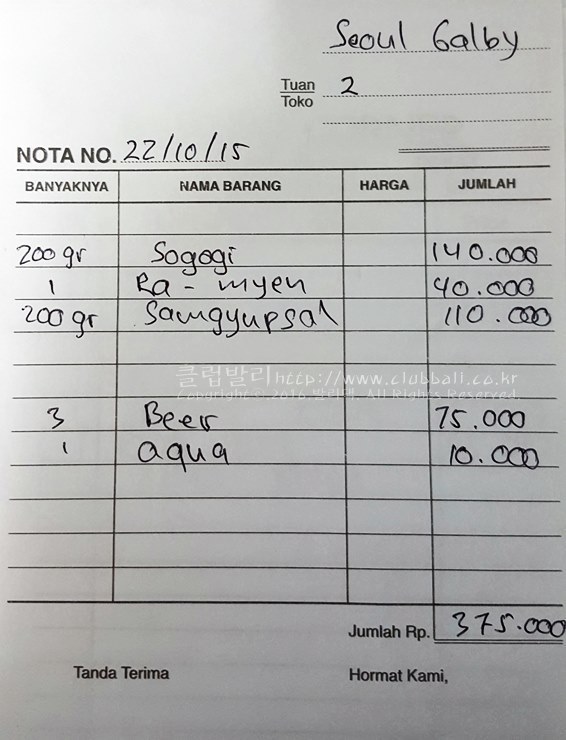 Seoul Galby
Tuan 2
Toko
NOTA NO. 22/10/15
BANYAKNYA NAMA BARANG HARGA JUMLAH
200 gr Sogogi 140.000
1 Ra-myen 40.000
200 gr Samgyupsal 110.000
클럽발리 http://www.clubbali.co.kr
Copyright © 2016 발리맥. All Rights Reserved.
3 Beer 75.000
1 aqua 10.000
Jumlah Rp. 375.000
Tanda Terima Hormat Kami,